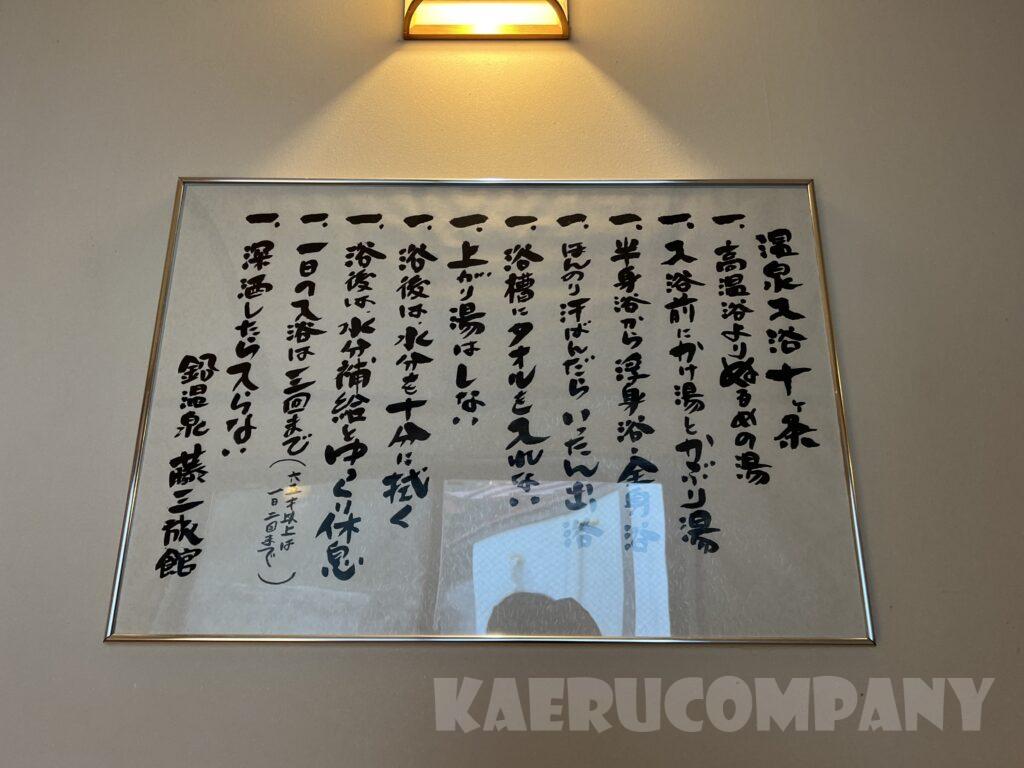 温泉入浴十ヶ条
一、高温浴よりぬるめの湯
一、入浴前にかけ湯とかぶり湯
一、半身浴から浮身浴・全身浴
一、ほんのり汗ばんだらいったん出浴
一、浴槽にタオルを入れない
一、上がり湯はしない
一、浴後は、水分も十分に拭く
一、浴後は、水分補給とゆっくり休息
一、一日の入浴は三回まで(六五才以上は一日二回まで)
一、深酒したら入らない
鉛温泉 藤三旅館
KAERUCOMPANY